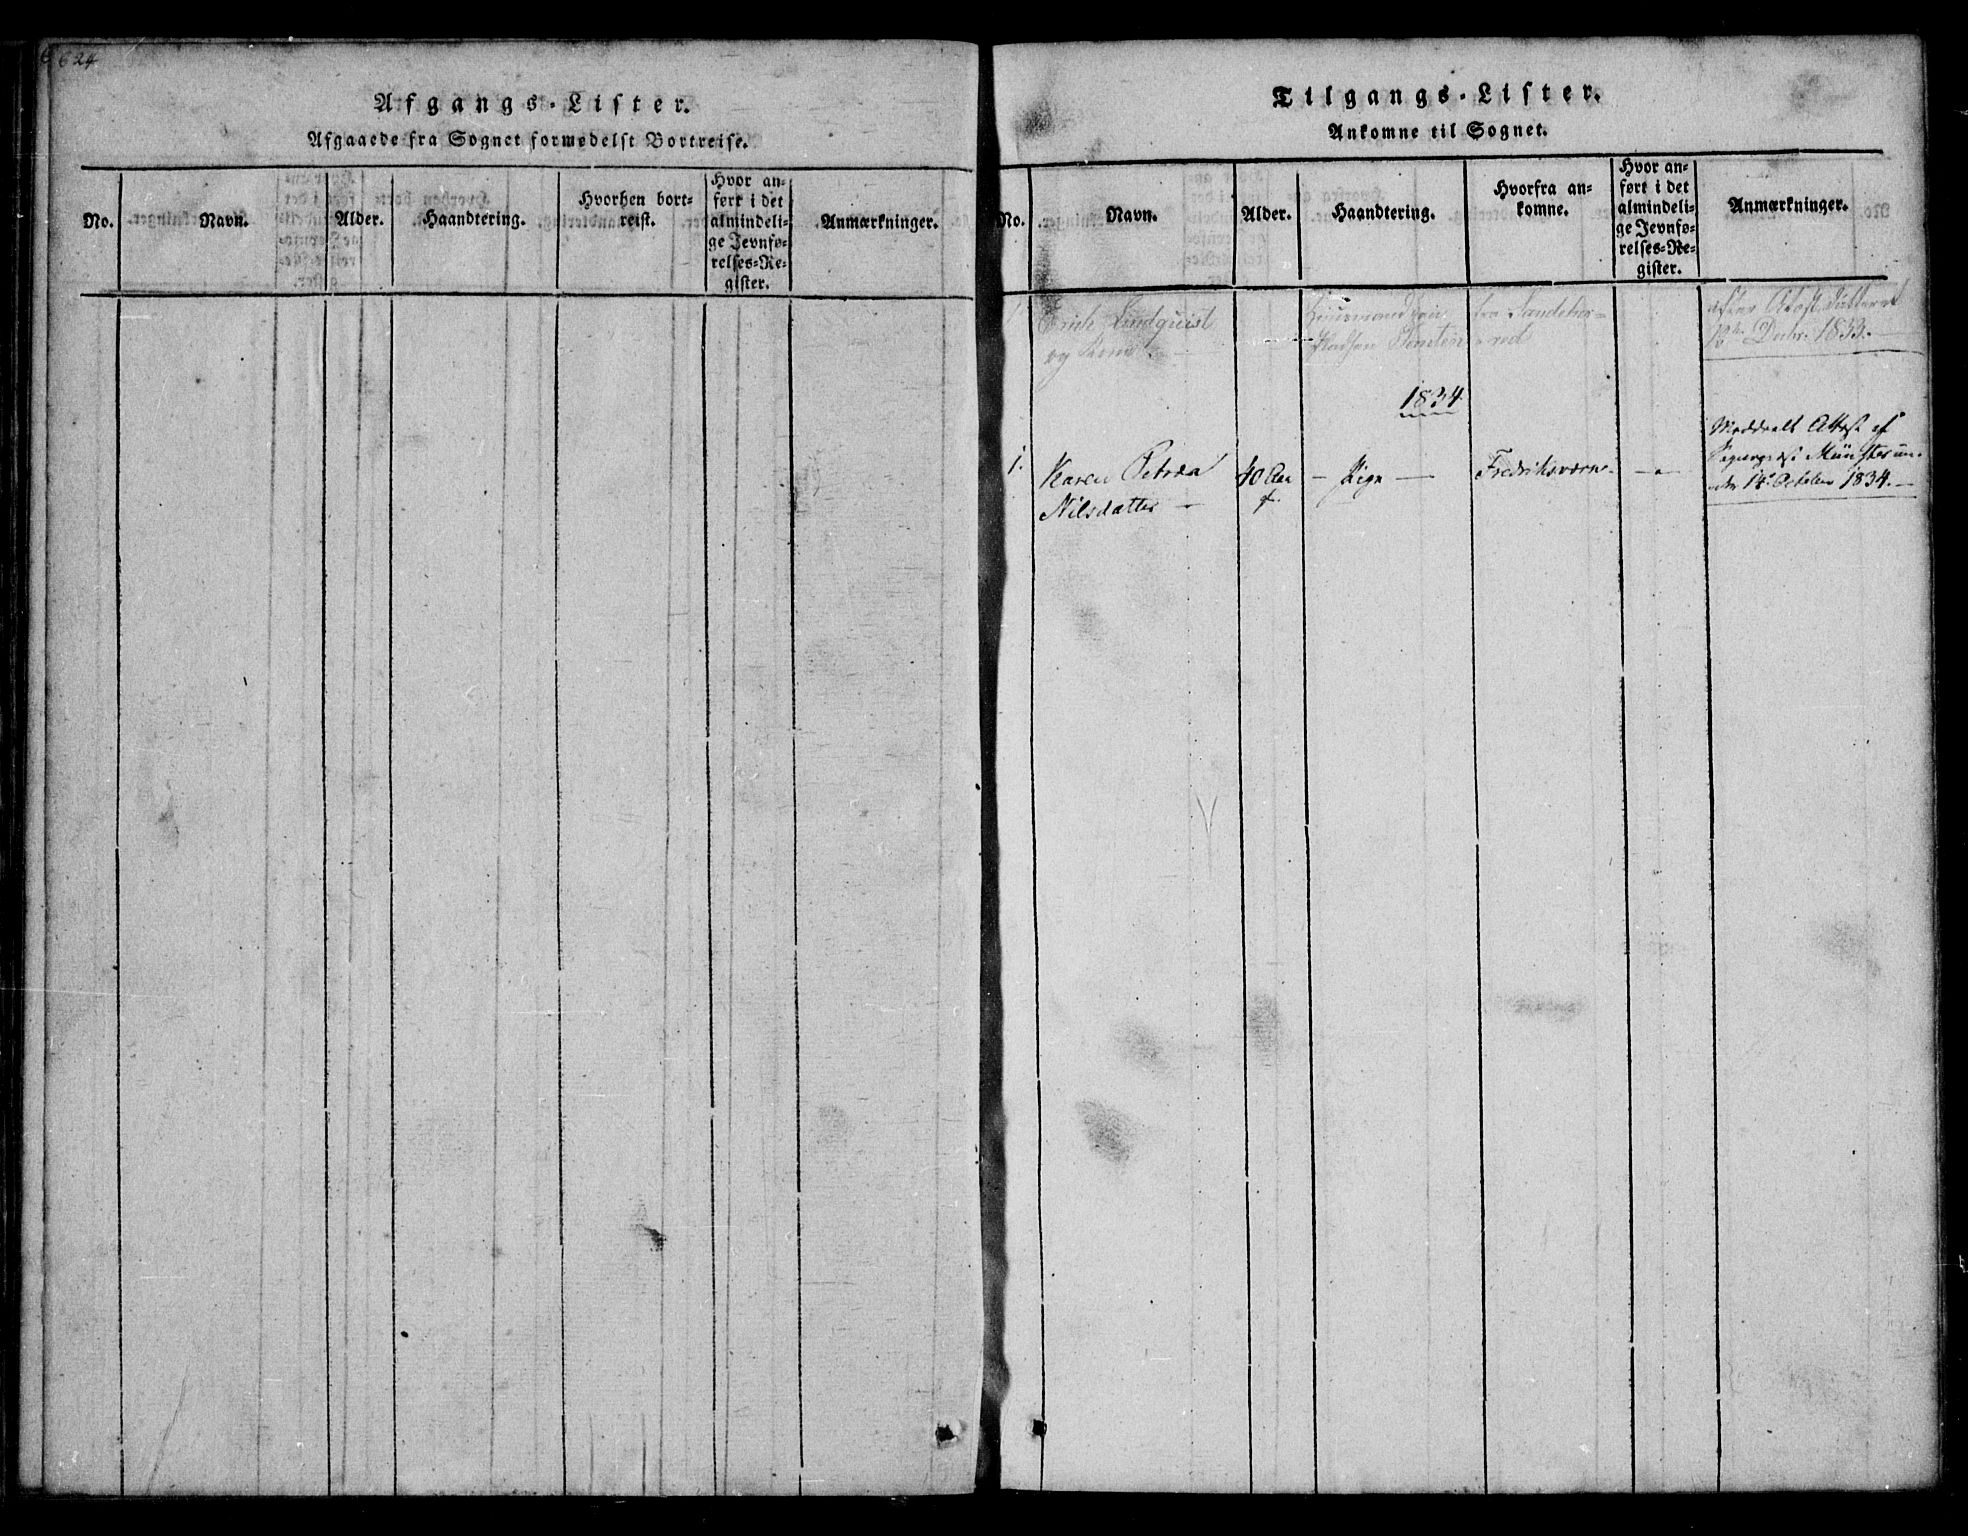 624
Afgangs-Lister.
Afgaaede fra Sognet formedelst Bortreise.
No.
Navn.
Alder.
Haandtering.
Hvorhen bort-
reist.
Hvor an-
ført i det
almindeli-
ge Jevnfø-
relses-Re-
gister.
Anmærkninger.
Tilgangs-Lister.
Ankomne til Sognet.
No.
Navn.
Alder.
Haandtering.
Hvorfra an-
komne.
Hvor an-
ført i det
almindeli-
ge Jevnfø-
relses-Re-
gister.
Anmærkninger.
1
Erich Lindquist
og Kone
Huusmand paa
Pladsen
fra Sandeher-
red
efter Attest dateret
Decbr. 1833.
1834.
1.
Karen Petrea
Nilsdatter
40 Aar
Pige
Fredriksværn
Meddeelt Attest af
Münster un-
der 14 October 1834.